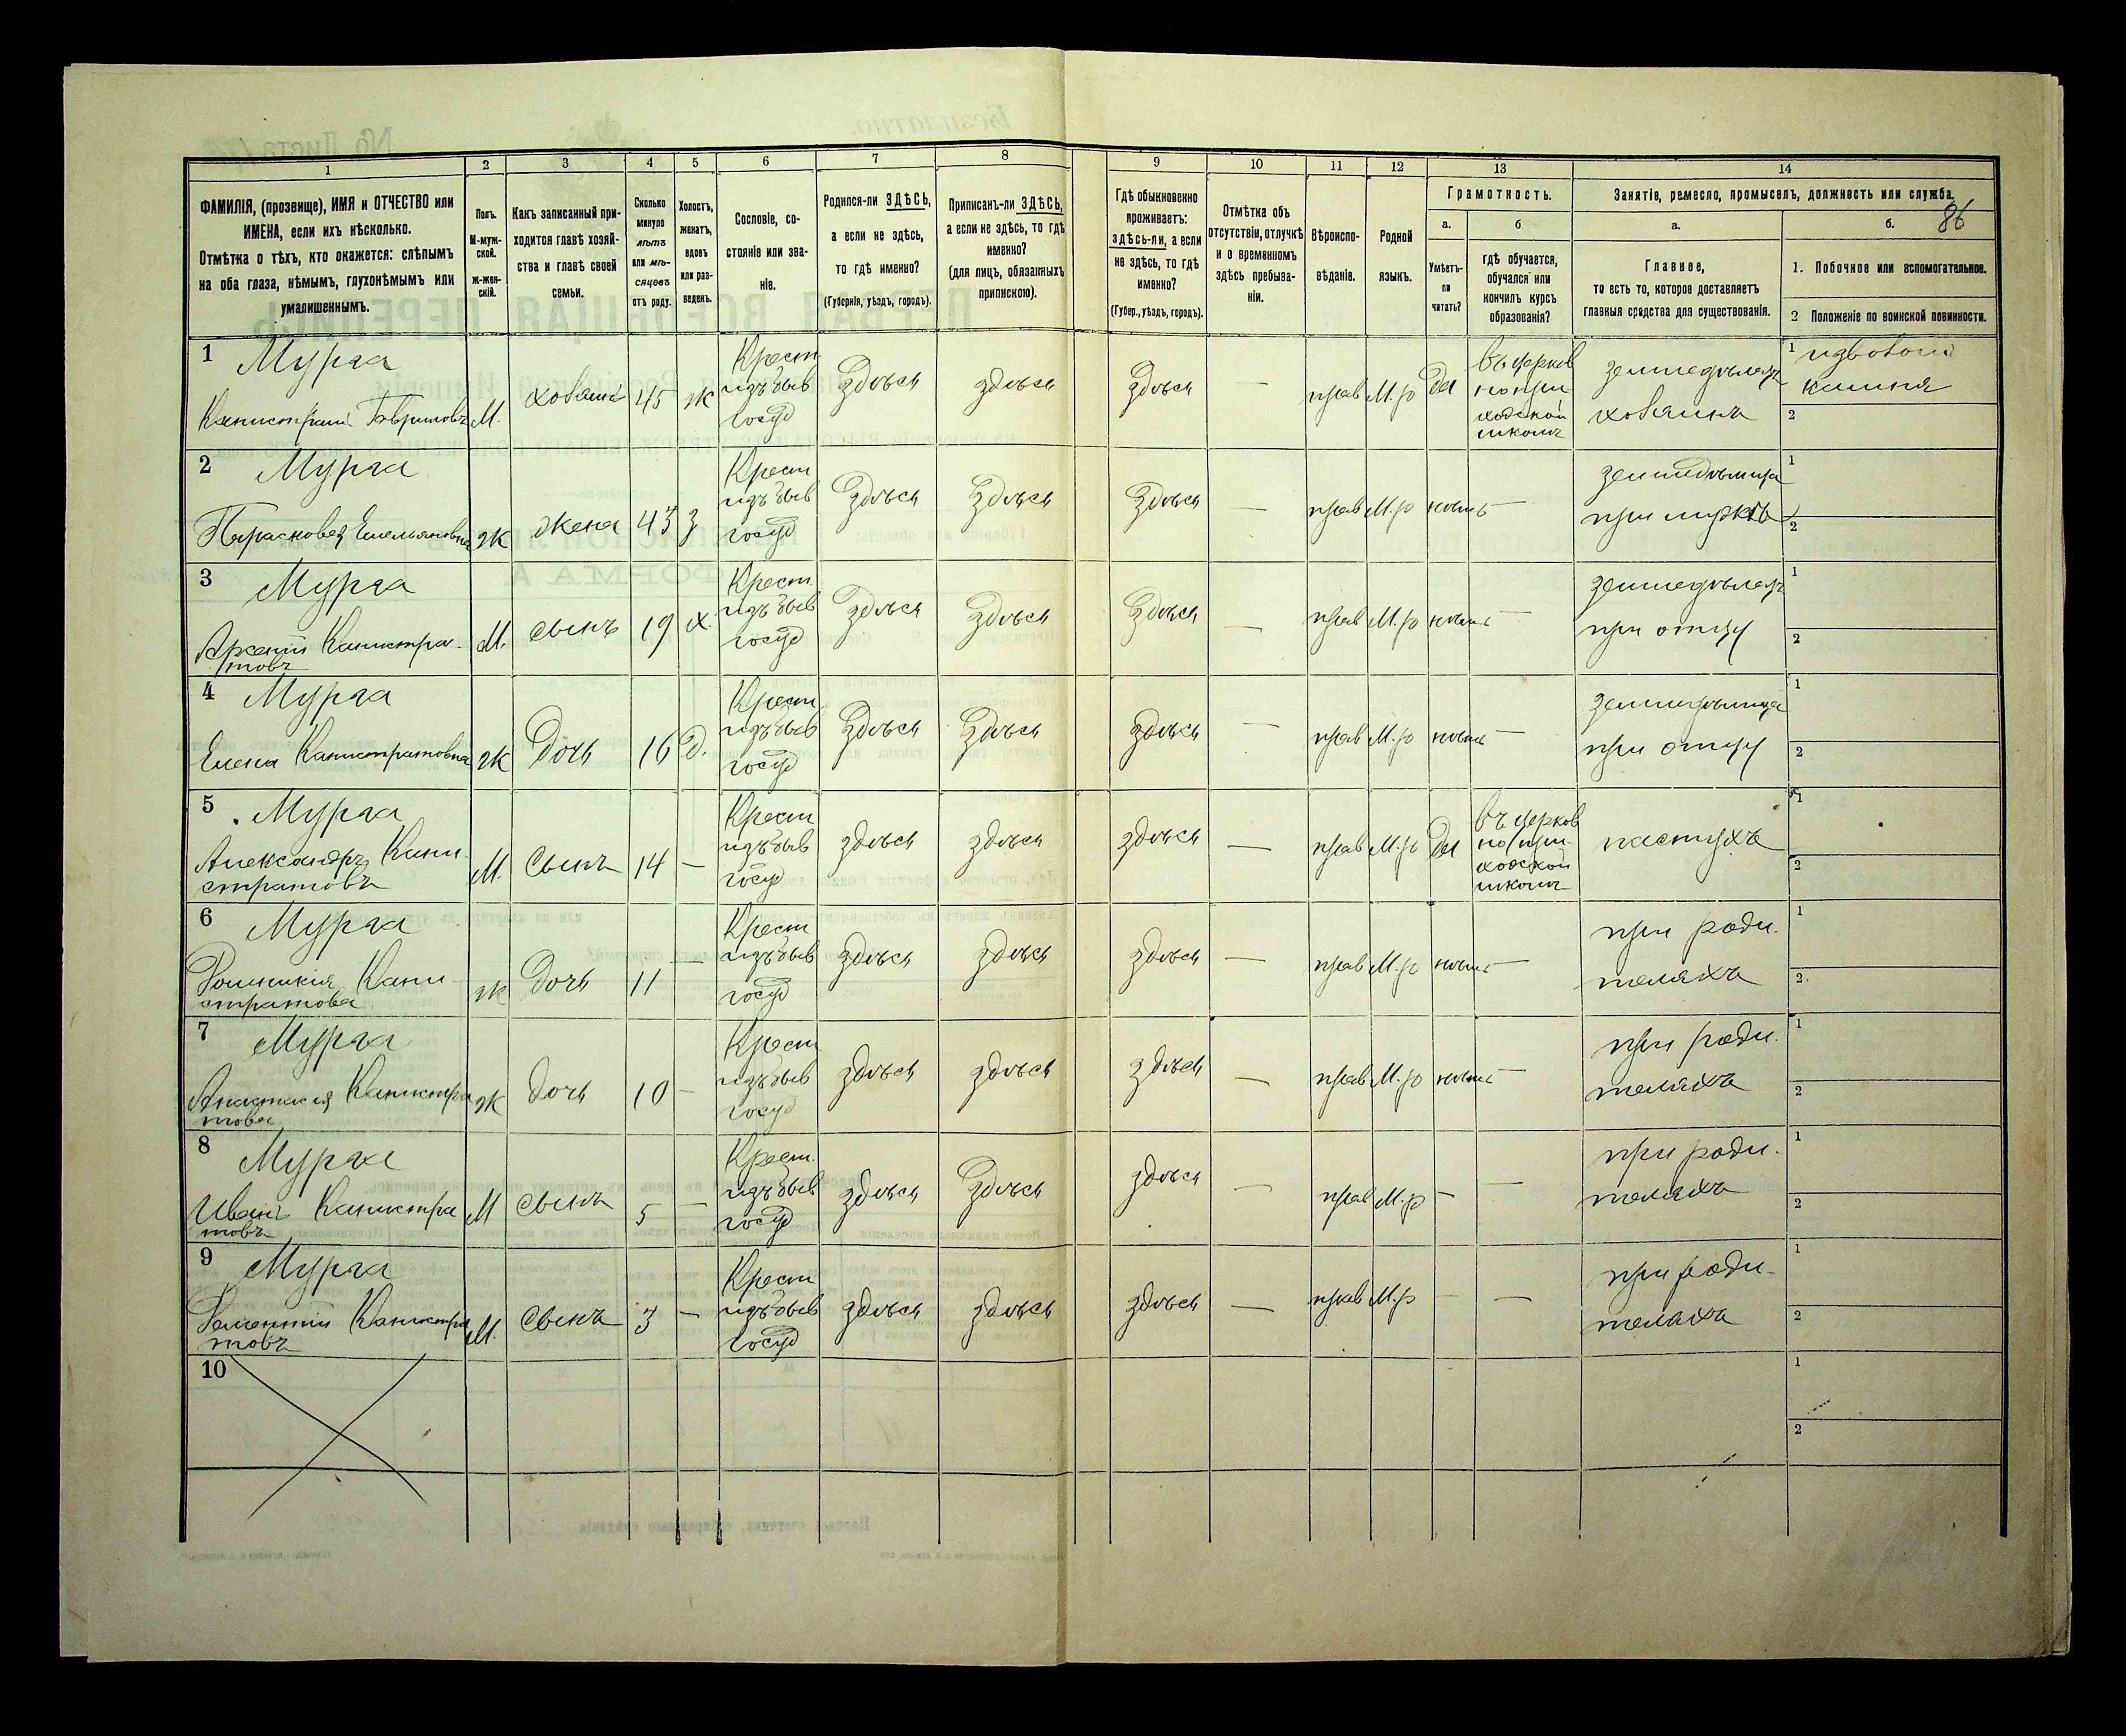 1 2 3 4 5 6 7 8 9 10 11 12 13 14
ФАМИЛІЯ, (прозвище), ИМЯ и ОТЧЕСТВО или
ИМЕНА, если ихъ нѣсколько.
Отмѣтка о тѣхъ, кто окажется: слѣпымъ
на оба глаза, нѣмымъ, глухонѣмымъ или
умалишеннымъ.
Полъ.
М-муж-
ской.
ж-жен-
скій.
Какъ записанный при-
ходится главѣ хозяй-
ства и главѣ своей
семьи.
Сколько
минуло
лѣтъ
или мѣ-
сяцевъ
отъ роду.
Холостъ,
женатъ,
вдовъ
или раз-
веденъ.
Сословіе, со-
стояніе или зва-
ніе.
Родился-ли ЗДѢСЬ,
а если не здѣсь,
то гдѣ именно?
(Губернія, уѣздъ, городъ).
Приписанъ-ли ЗДѢСЬ,
а если не здѣсь, то гдѣ
именно?
(для лицъ, обязанныхъ
припискою).
Гдѣ обыкновенно
проживаетъ:
здѣсь-ли, а если
не здѣсь, то гдѣ
именно?
(Губер., уѣздъ, городъ).
Отмѣтка объ
отсутствіи, отлучкѣ
и о временномъ
здѣсь пребыва-
ніи.
Вѣроиспо-
вѣданіе.
Родной
языкъ.
Грамотность.
а.
Умѣетъ-
ли
читать?
б
гдѣ обучается,
обучался или
кончилъ курсъ
образованія?
Занятіе, ремесло, промыселъ, должность или служба.
86
а.
Главное,
то есть то, которое доставляетъ
главныя средства для существованія.
б.
1. Побочное или вспомогательное.
2 Положеніе по воинской повинности.
1 Мурга
Канистратъ Гавриловъ
М.
хозяинъ
45
ж
Крест
изъ быв
госуд
здѣсь
здѣсь
здѣсь
—
прав
М.р
Да
въ церков
но при
ходской
школѣ
земледѣлецъ
хозяинъ
1
камня
2
2 Мурга
Парасковея Емельяновна
ж
жена
43
з
Крест
изъ быв
госуд
Здѣсь
Здѣсь
Здѣсь
—
прав
М.р
нѣтъ
—
земледѣлица
при мужѣ
1
2
3 Мурга
Арсеній Канистра-
товъ
М.
сынъ
19
х.
Крест.
изъ быв
госуд
Здѣсь
Здѣсь
Здѣсь
—
прав
М.р
нѣтъ
—
земледѣлецъ
при отцу
1
2
4 Мурга
Елена Канистратовна
ж
Дочь
16
д.
Крест
изъ быв
госуд
Здѣсь
Здѣсь
здѣсь
—
прав
М.р
нѣтъ
—
земледѣлица
при отцу
1
2
5 Мурга
Александръ Кани-
стратовъ
М.
Сынъ
14
—
Крест
изъ быв
госуд
здѣсь
здѣсь
здѣсь
—
прав
М.р
Да
въ церков
но при-
ходской
школѣ
пастухъ
1
2
6 Мурга
Кани-
стратова
ж
Дочь
11
—
Крест
изъ быв
госуд
здѣсь
здѣсь
здѣсь
—
прав
М.р
нѣтъ
—
при роди-
теляхъ
1
2.
7 Мурга
Анастасія Канистра
това
ж
Дочь
10
—
Крест
изъ быв
госуд
здѣсь
здѣсь
здѣсь
—
прав
М.р
нѣтъ
—
при роди-
теляхъ
1
2
8 Мурга
Иванъ Канистра
товъ
М
сынъ
5
—
Крест.
изъ быв
госуд
здѣсь
Здѣсь
здѣсь
—
прав
М.р
—
—
при роди-
теляхъ
1
2
9 Мурга
Канистра
товъ
М.
сынъ
3
—
Крест
изъ быв
госуд
здѣсь
здѣсь
здѣсь
—
прав
М.р
—
—
при роди-
теляхъ
1
2
10
1
2